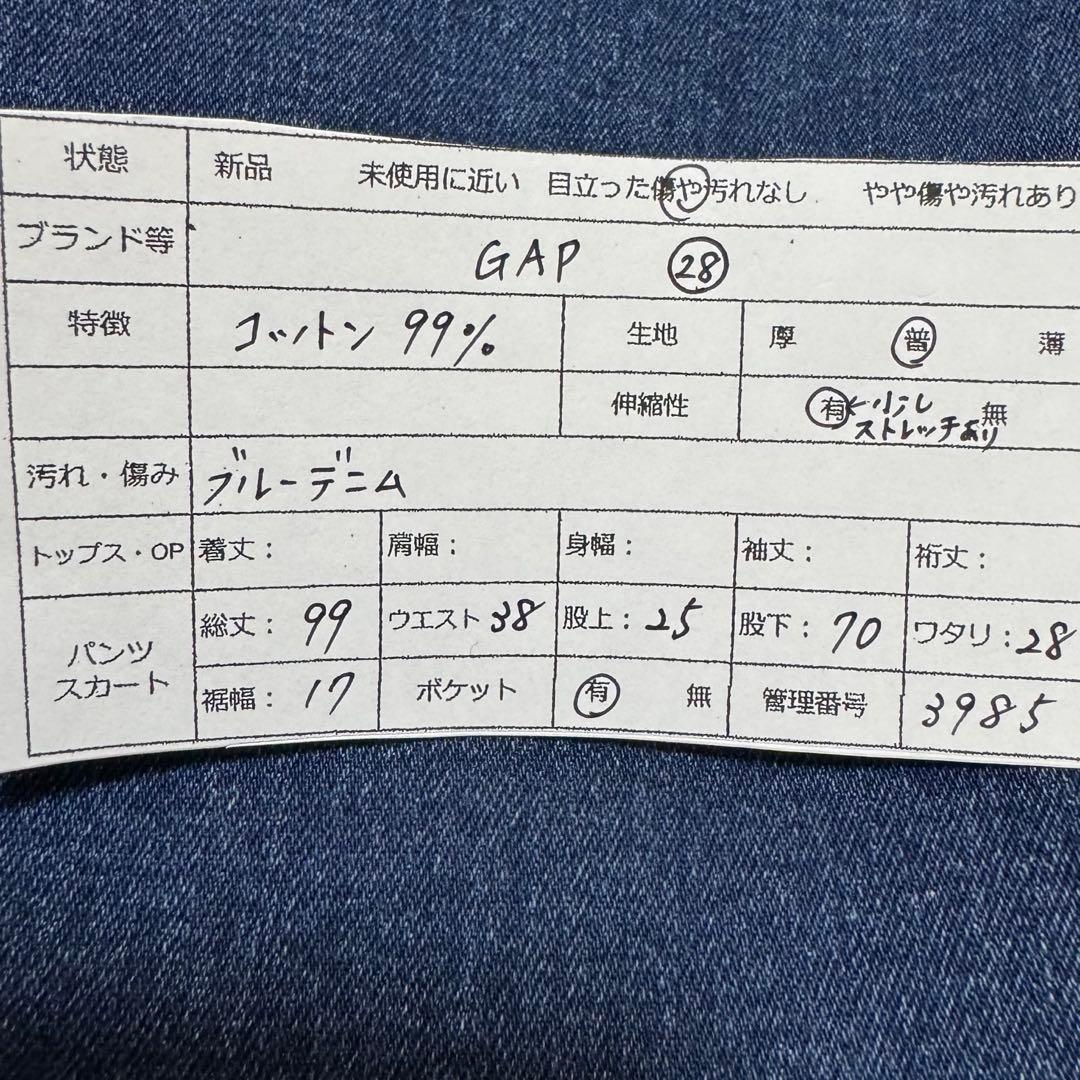 状態 新品 未使用に近い 目立った傷や汚れなし やや傷や汚れあり
ブランド等 GAP 28
特徴 コットン 99% 生地 厚 普 薄
伸縮性 有 ←少し 無
ストレッチあり
汚れ・傷み ブルーデニム
トップス・OP 着丈: 肩幅: 身幅: 袖丈: 裄丈:
パンツ スカート 総丈: 99 ウエスト 38 股上: 25 股下: 70 ワタリ: 28
裾幅: 17 ポケット 有 無 管理番号 3985